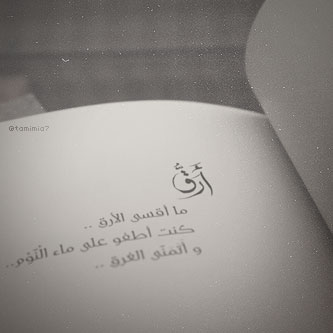 @tamimia7
أَرَقٌ
ما أقسى الأرق ..
كنت أطفو على ماء النّوم..
و أتمنّى الغرق ..